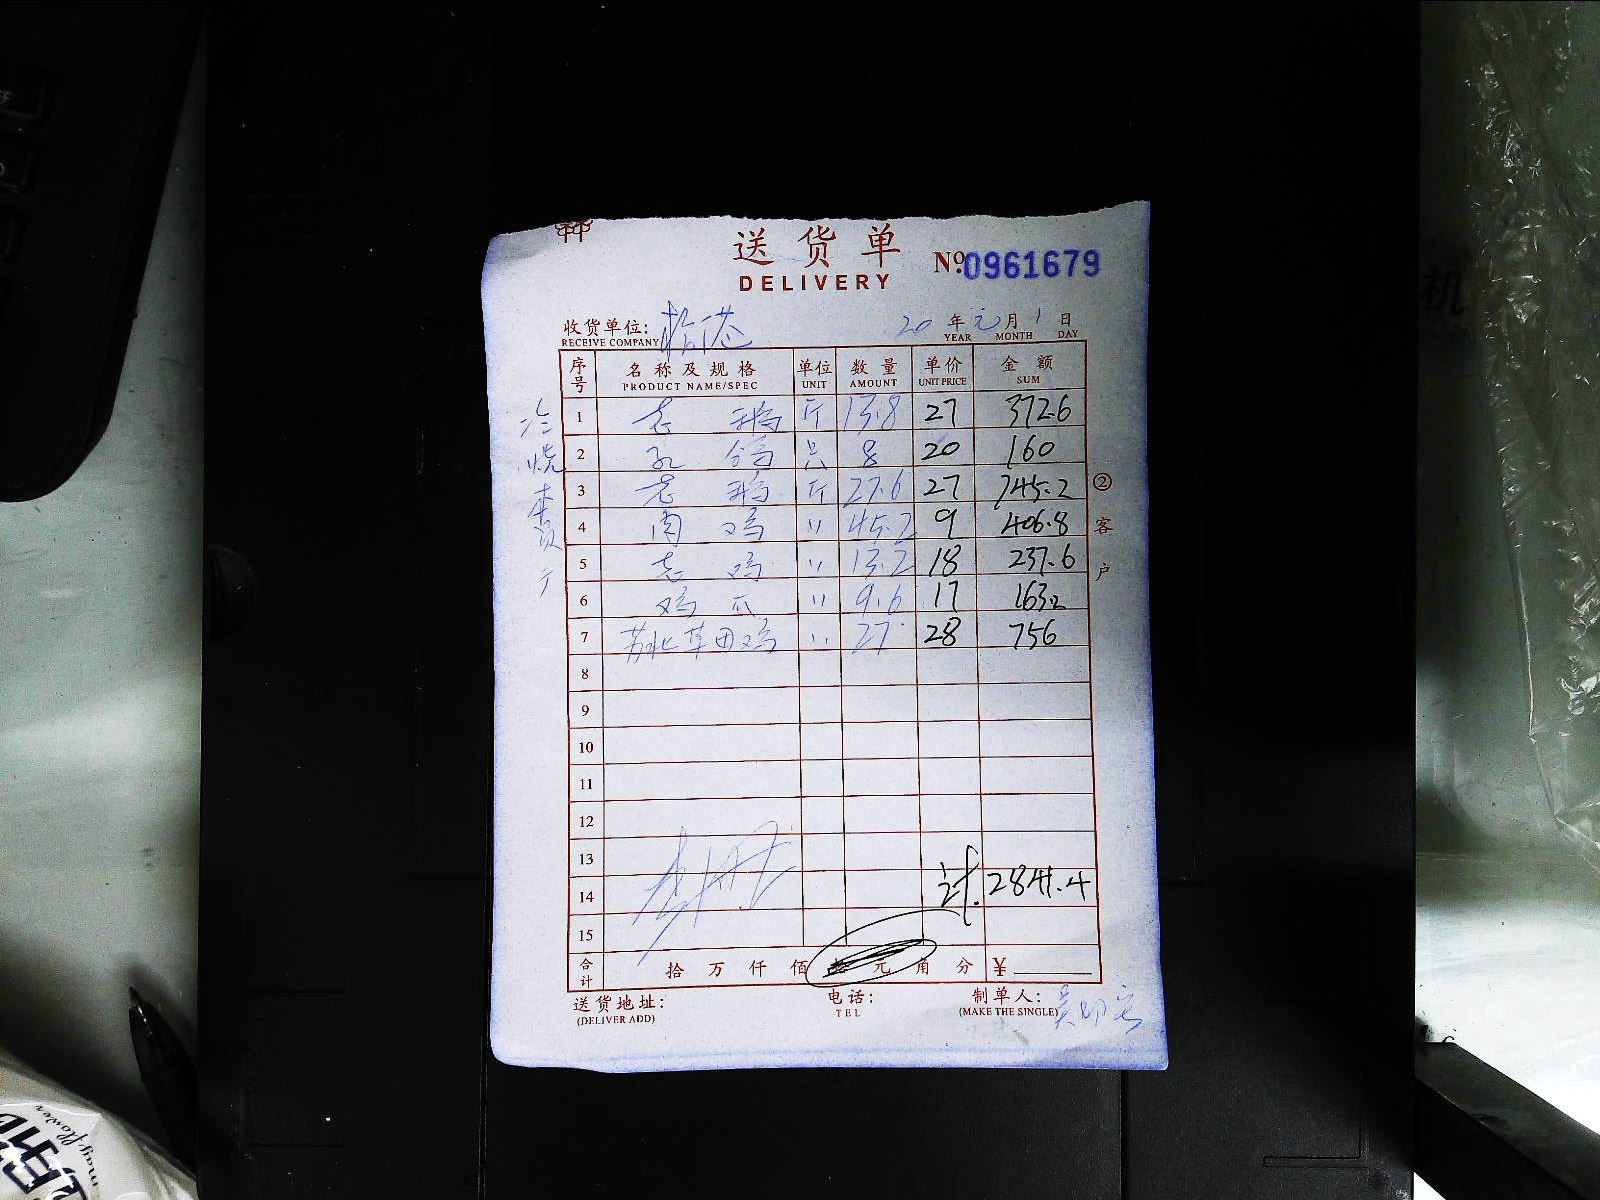 送货单
DELIVERY
№ 0961679
收货单位:
RECEIVE COMPANY
20 年 元 月 1 日
YEAR MONTH DAY
序号 名称及规格 单位 数量 单价 金额
PRODUCT NAME/SPEC UNIT AMOUNT UNIT PRICE SUM
1 老鹅 斤 13.8 27 372.6
2 乳鸽 只 8 20 160
3 老鹅 斤 27.6 27 745.2
4 肉鸡 〃 45.2 9 406.8
5 老鸡 〃 13.2 18 237.6
6 鸡爪 〃 9.6 17 163.2
7 苏北草田鸡 〃 27 28 756
8
9
10
11
12
13
14 计. 2841.4
15
合计 拾 万 仟 佰 元 角 分 ¥
送货地址: 电话: 制单人:
(DELIVER ADD) TEL (MAKE THE SINGLE)
②客户
冷烧
mayflower
机